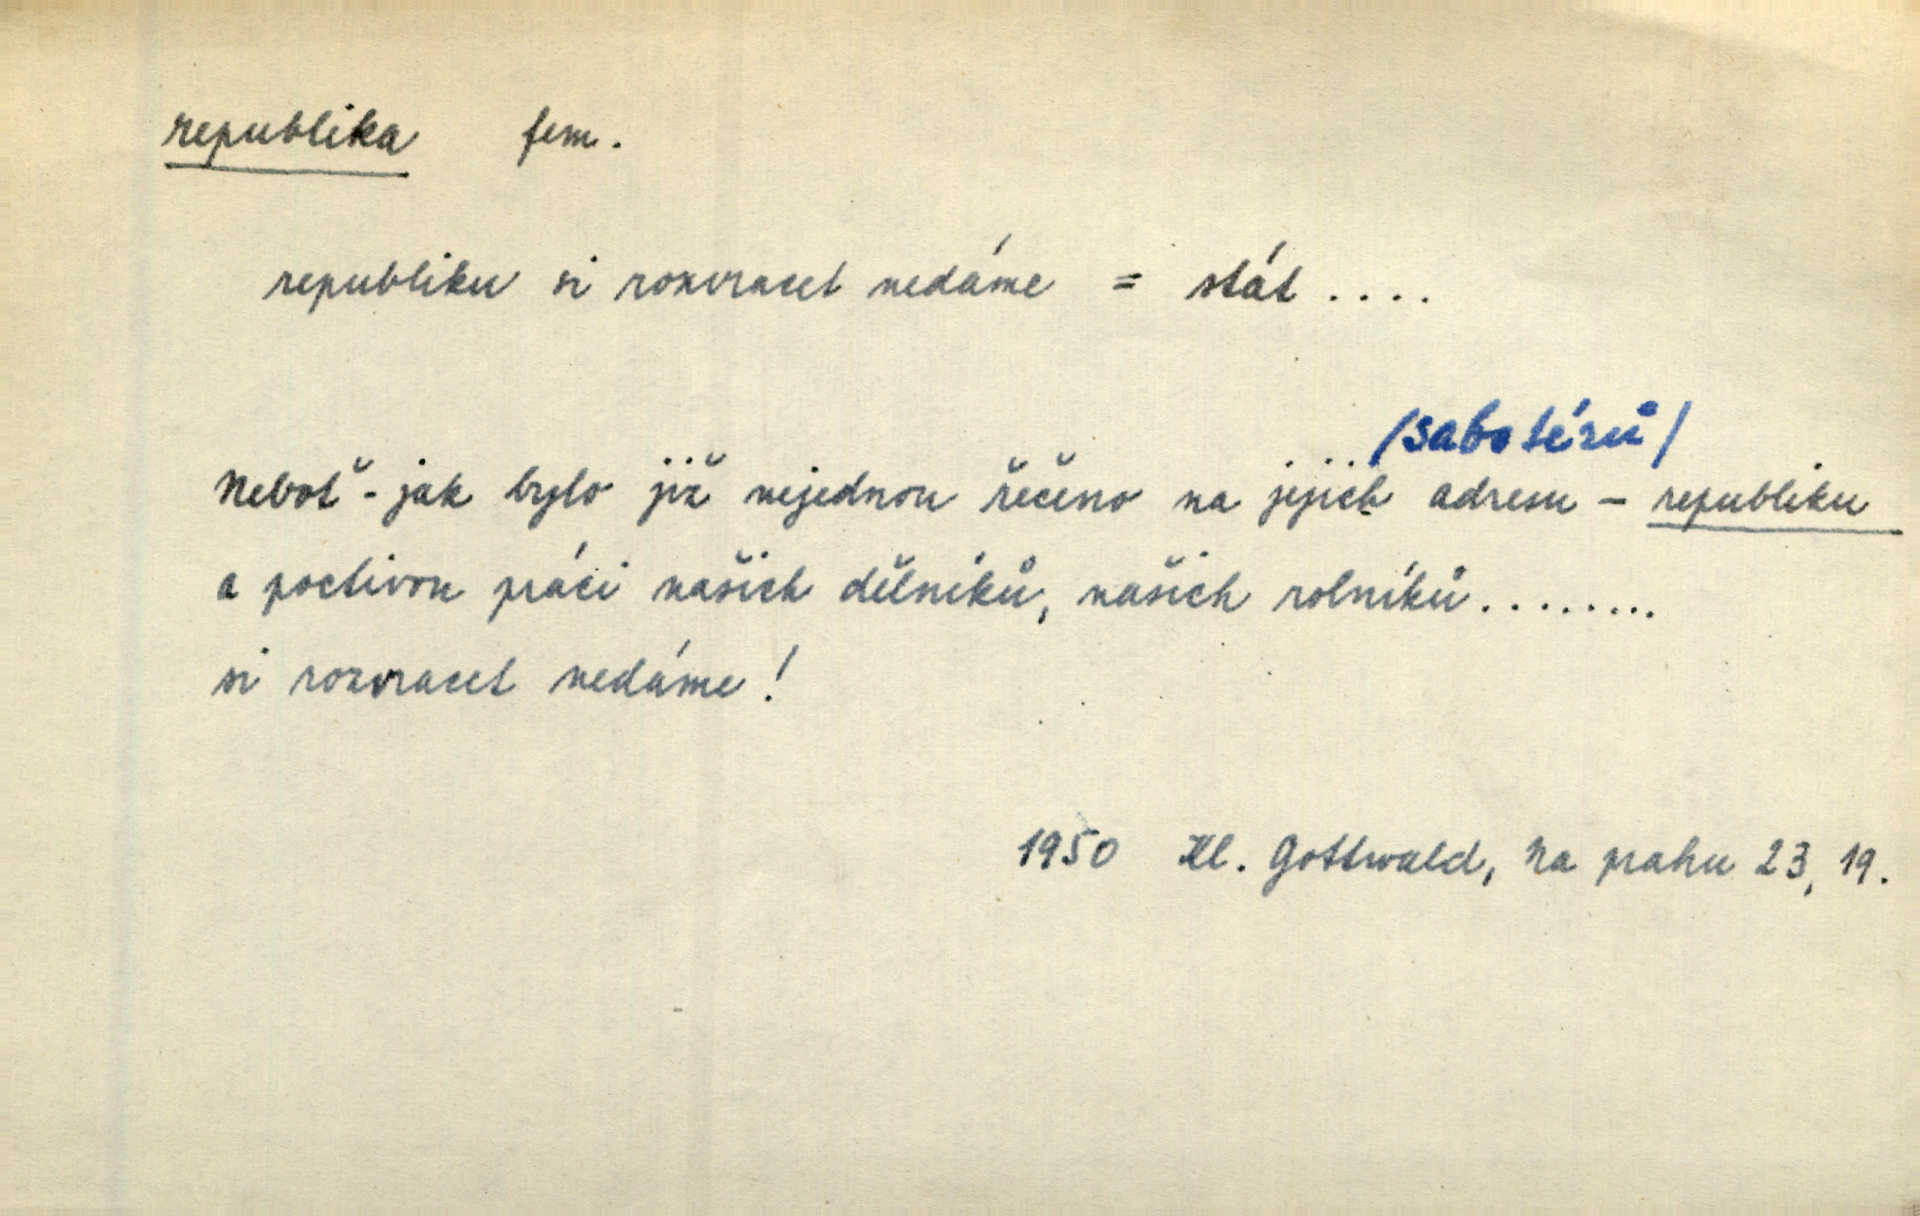 republika fem.
republiku si rozvracet nedáme = stát ....
/sabotérů/
Neboť - jak bylo již nejednou řečeno na jejich adresu - republiku
a poctivou práci našich dělníků, našich rolníků.........
si rozvracet nedáme!
1950 Kl. Gottwald, Na prahu 23, 19.